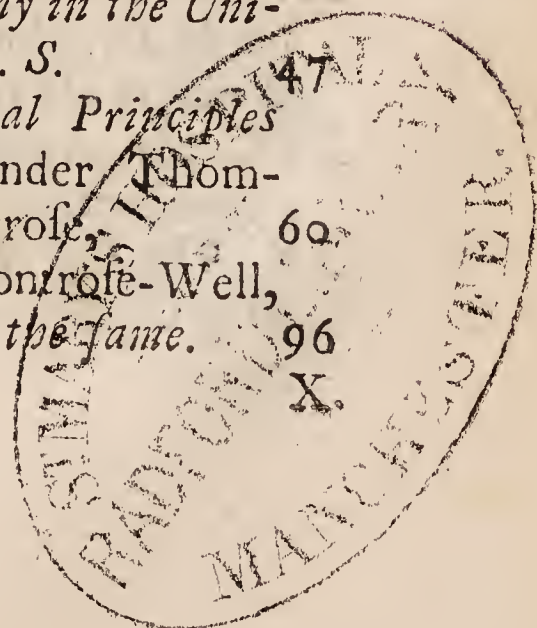 ay in the Uni-
. S. 47
al Principles
nder Thom-
roſe, 60
ontroſe-Well,
the ſame. 96
X.
RADFORD
MANCHESTER.